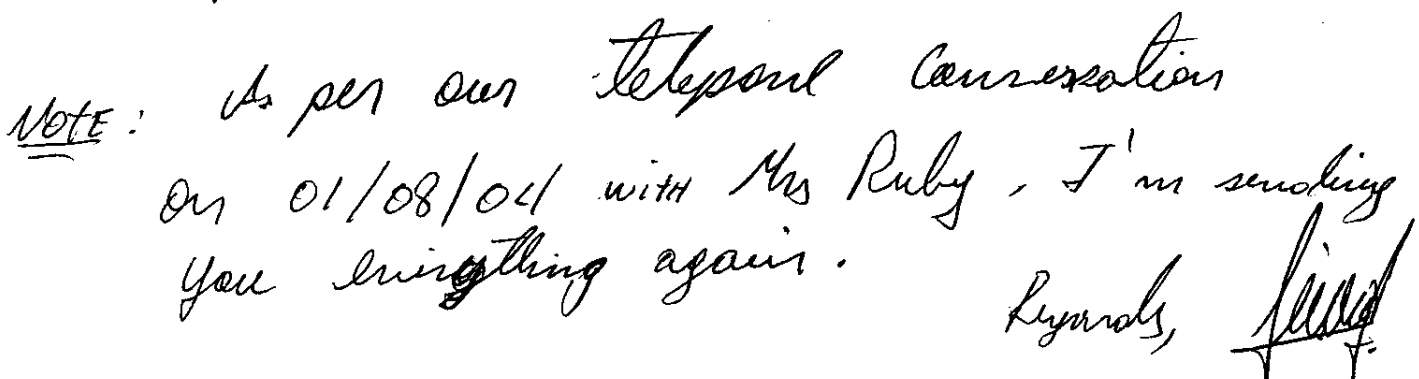 NOTE: As per our telepone Conversation
on 01/08/04 with Mrs Ruby, I'm sending
you everything again.
Regards,